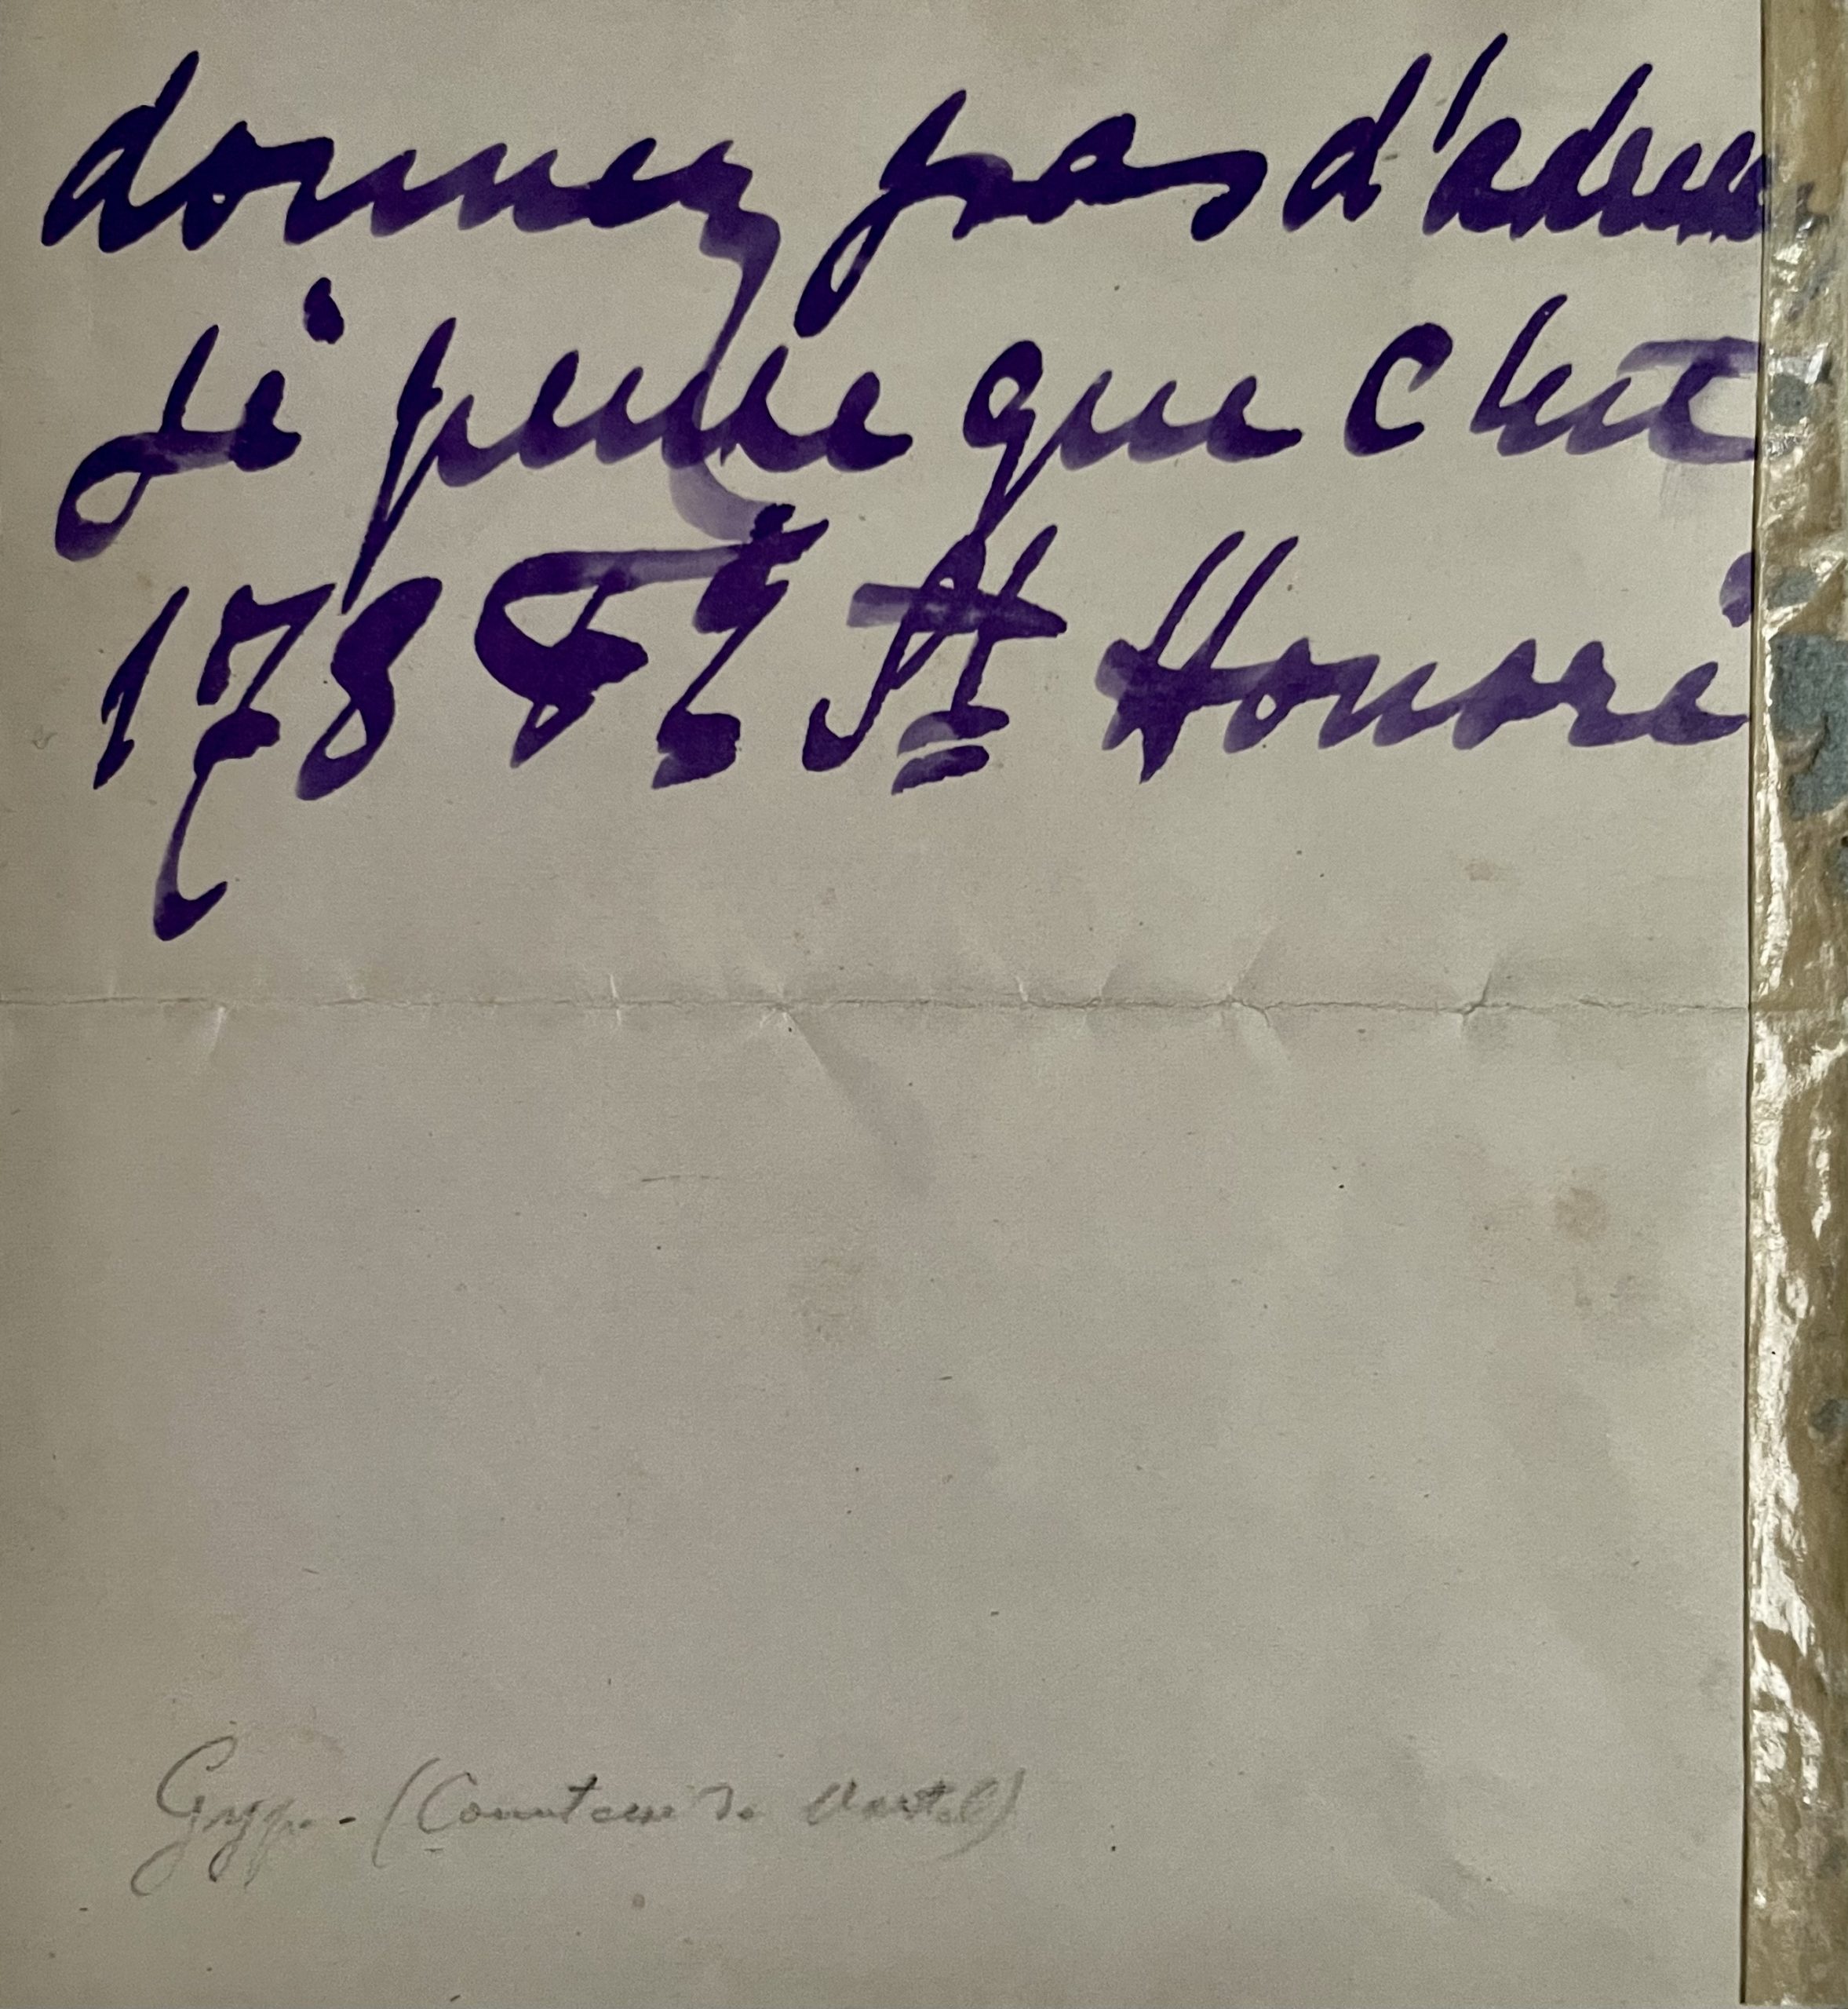 donnez pas d'adresse
je pense que c'est
178 Fg St Honoré
Gyp - (Comtesse de Martel)